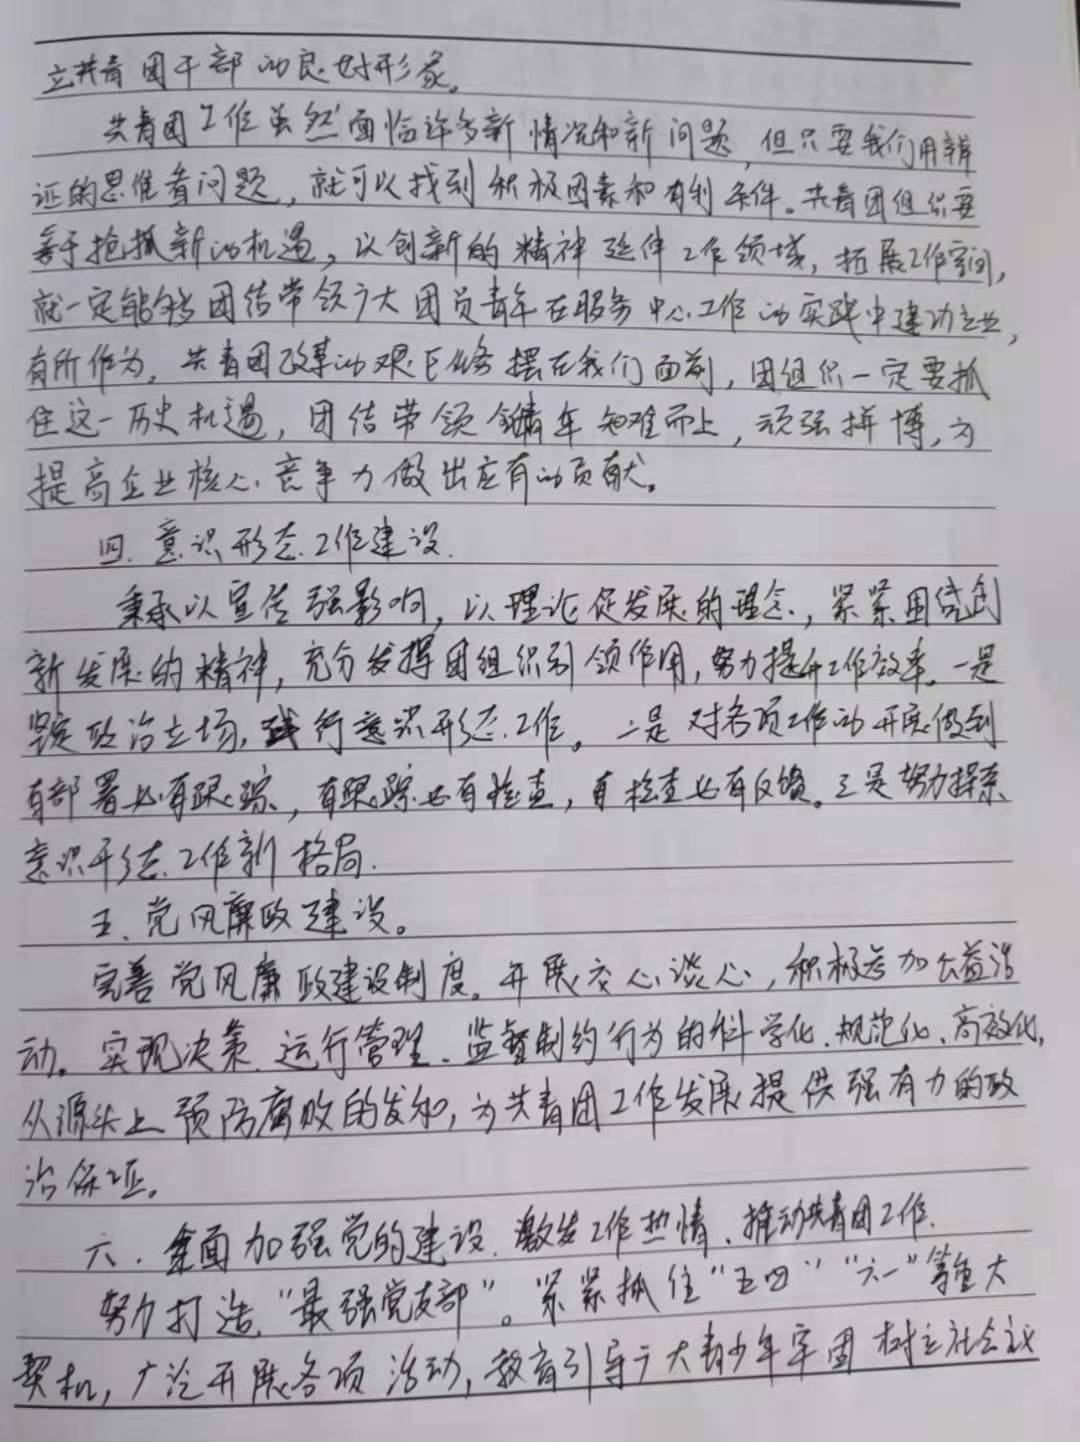 立共青团干部的良好形象。
共青团工作虽然面临许多新情况和新问题，但只要我们用辩
证的思维看问题，就可以找到积极因素和有利条件。共青团组织要
善于抢抓新的机遇，以创新的精神延伸工作领域，拓展工作空间，
就一定能够团结带领广大团员青年在服务中心工作的实践中建功立业，
有所作为。共青团改革的艰巨任务摆在我们面前，团组织一定要抓
住这一历史机遇，团结带领青年知难而上，顽强拼博，为
提高企业核心竞争力做出应有的贡献。
四.意识形态工作建设.
秉承以宣传强影响，以理论促发展的理念，紧紧围绕创
新发展的精神，充分发挥团组织引领作用，努力提升工作效率。一是
坚定政治立场，践行意识形态工作。二是对各项工作的开展做到
有部署必有跟踪，有跟踪必有检查，有检查必有反馈。三是努力探索
意识形态工作新格局.
五、党风廉政建设。
完善党风廉政建设制度。开展交心谈心，积极参加公益活
动。实现决策、运行管理、监督制约行为的科学化、规范化、高效化，
从源头上预防腐败的发生，为共青团工作发展提供强有力的政
治保证。
六.全面加强党的建设、激发工作热情、推动共青团工作.
努力打造“最强党支部”。紧紧抓住“五四”“六一”等重大
契机，广泛开展各项活动，教育引导广大青少年牢固树立社会主义